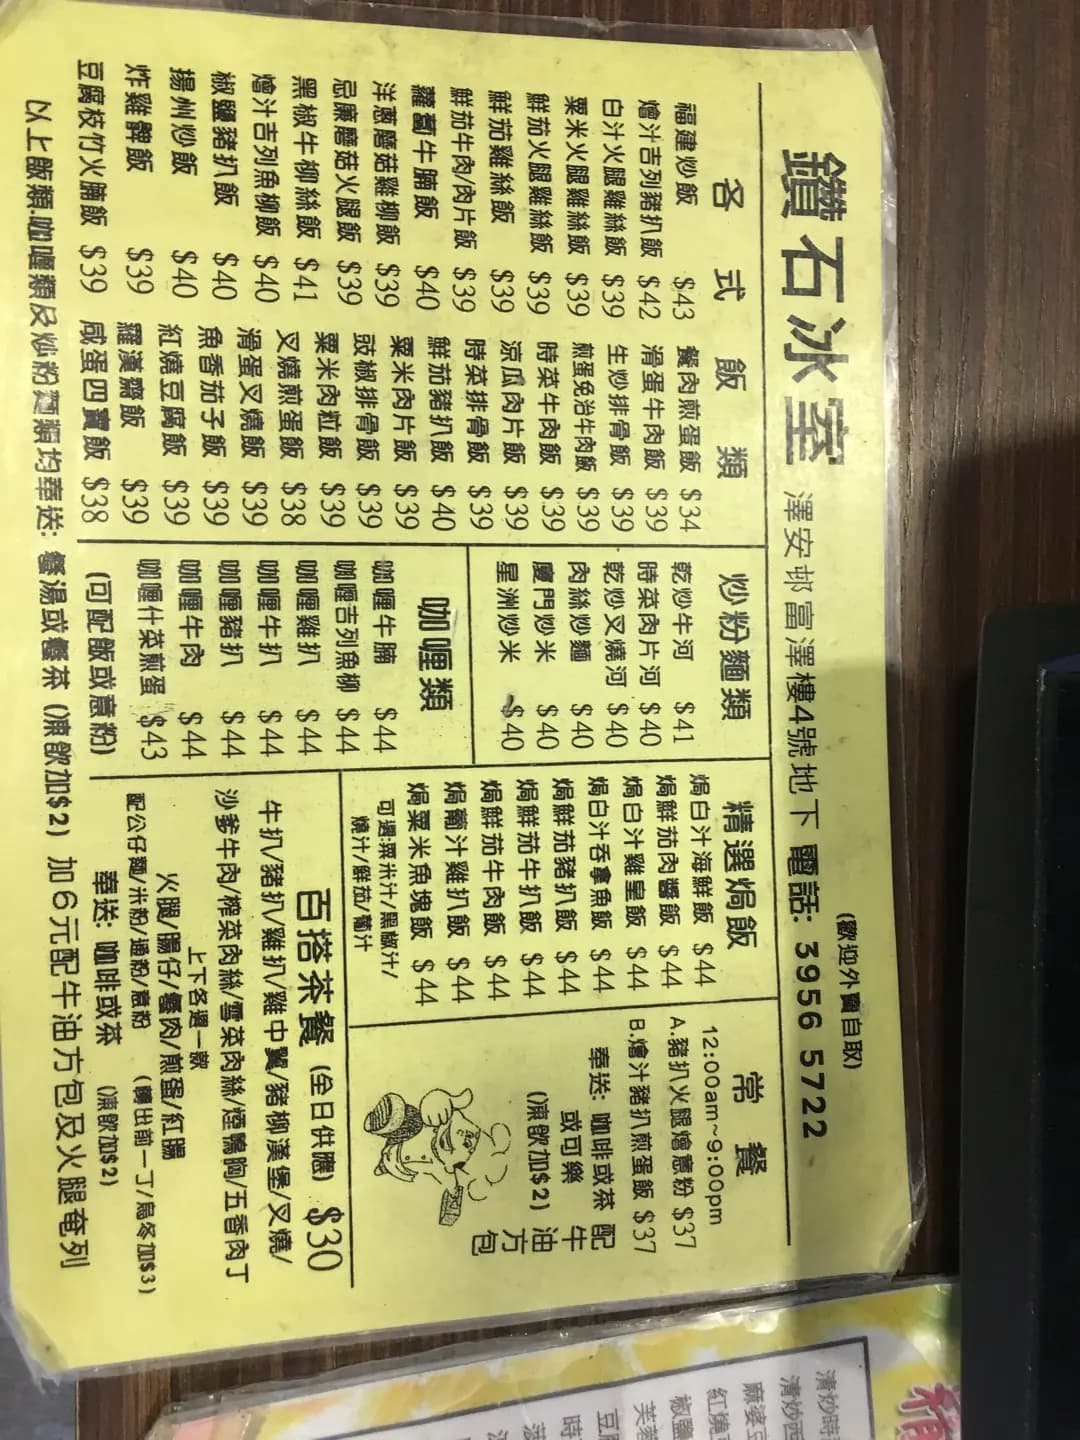 鑽石冰室 澤安邨富澤樓4號地下 電話: 3956 5722
(歡迎外賣自取)
各式飯類
福建炒飯 $43
燴汁吉列豬扒飯 $42
白汁火腿雞絲飯 $39
粟米火腿雞絲飯 $39
鮮茄火腿雞絲飯 $39
鮮茄雞絲飯 $39
鮮茄牛肉/肉片飯 $39
蘿蔔牛腩飯 $40
洋蔥蘑菇雞柳飯 $39
忌廉蘑菇火腿飯 $39
黑椒牛柳絲飯 $41
燴汁吉列魚柳飯 $40
椒鹽豬扒飯 $40
揚州炒飯 $40
炸雞髀飯 $39
豆腐枝竹火腩飯 $39
餐肉煎蛋飯 $34
滑蛋牛肉飯 $39
生炒排骨飯 $39
煎蛋免治牛肉飯 $39
時菜牛肉飯 $39
涼瓜肉片飯 $39
時菜排骨飯 $39
鮮茄豬扒飯 $40
粟米肉片飯 $39
豉椒排骨飯 $39
粟米肉粒飯 $39
叉燒煎蛋飯 $38
滑蛋叉燒飯 $39
魚香茄子飯 $39
紅燒豆腐飯 $39
羅漢齋飯 $39
咸蛋四寶飯 $38
炒粉麵類
乾炒牛河 $41
時菜肉片河 $40
乾炒叉燒河 $40
肉絲炒麵 $40
廈門炒米 $40
星洲炒米 $40
咖喱類
咖喱牛腩 $44
咖喱吉列魚柳 $44
咖喱雞扒 $44
咖喱牛扒 $44
咖喱豬扒 $44
咖喱牛肉 $44
咖喱什菜煎蛋 $43
(可配飯或意粉)
精選焗飯
焗白汁海鮮飯 $44
焗鮮茄肉醬飯 $44
焗白汁雞皇飯 $44
焗白汁吞拿魚飯 $44
焗鮮茄豬扒飯 $44
焗鮮茄牛扒飯 $44
焗鮮茄牛肉飯 $44
焗葡汁雞扒飯 $44
焗粟米魚塊飯 $44
可選:粟米汁/黑椒汁/
燒汁/鮮茄/葡汁
常餐
12:00am~9:00pm
A.豬扒火腿燴意粉 $37
B.燴汁豬扒煎蛋飯 $37
奉送: 咖啡或茶
或可樂
(凍飲加$2)
配牛油方包
百搭茶餐 (全日供應) $30
牛扒/豬扒/雞扒/雞中翼/豬柳漢堡/叉燒/
沙爹牛肉/榨菜肉絲/雪菜肉絲/煙鴨胸/五香肉丁
上下各選一款
火腿/腸仔/餐肉/煎蛋/紅腸
配公仔麵/米粉/通粉/意粉 (轉出前一丁/烏冬加$3)
奉送: 咖啡或茶 (凍飲加$2)
以上飯類.咖喱類及炒粉麵類均奉送: 餐湯或餐茶 (凍飲加$2) 加6元配牛油方包及火腿奄列
清炒時
清炒西
麻婆豆
紅燒
椒鹽
芙蓉
豆腐
時
菠